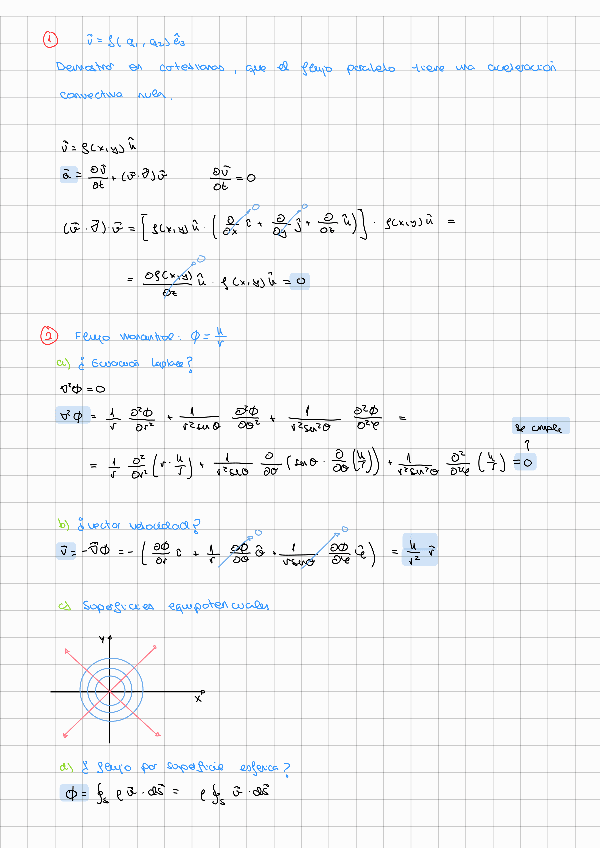 ① v⃗ = f(q₁, q₂) ê₃
Demostrar en cartesianas, que el flujo paralelo tiene una aceleración
convectiva nula.
v⃗ = f(x,y) k̂
a⃗ = ∂v⃗/∂t + (v⃗·∇⃗)v⃗   ∂v⃗/∂t = 0
(v⃗·∇⃗)·v⃗ = [f(x,y) k̂ · (∂/∂x î + ∂/∂y ĵ + ∂/∂z k̂)] · f(x,y) k̂ =
0 0
= ∂f(x,y)/∂z k̂ · f(x,y) k̂ = 0
0
② Flujo manantial: φ = k/r
a) ¿Ecuación Laplace?
∇²φ = 0
∇²φ = 1/r ∂²φ/∂r² + 1/(r² senθ) ∂²φ/∂θ² + 1/(r² sen²θ) ∂²φ/∂²φ =
se cumple
↑
= 1/r ∂²/∂r² (r · k/r) + 1/(r² senθ) ∂/∂θ (senθ · ∂/∂θ (k/r)) + 1/(r² sen²θ) ∂²/∂²φ (k/r) = 0
b) ¿vector velocidad?
v⃗ = -∇⃗φ = - (∂φ/∂r r̂ + 1/r ∂φ/∂θ θ̂ + 1/(r senθ) ∂φ/∂φ φ̂) = k/r² r̂
0 0
c) Superficies equipotenciales
y
x
d) ¿flujo por superficie esférica?
ϕ = ∮s ρ v⃗ · ds⃗ = ρ ∮s v⃗ · ds⃗